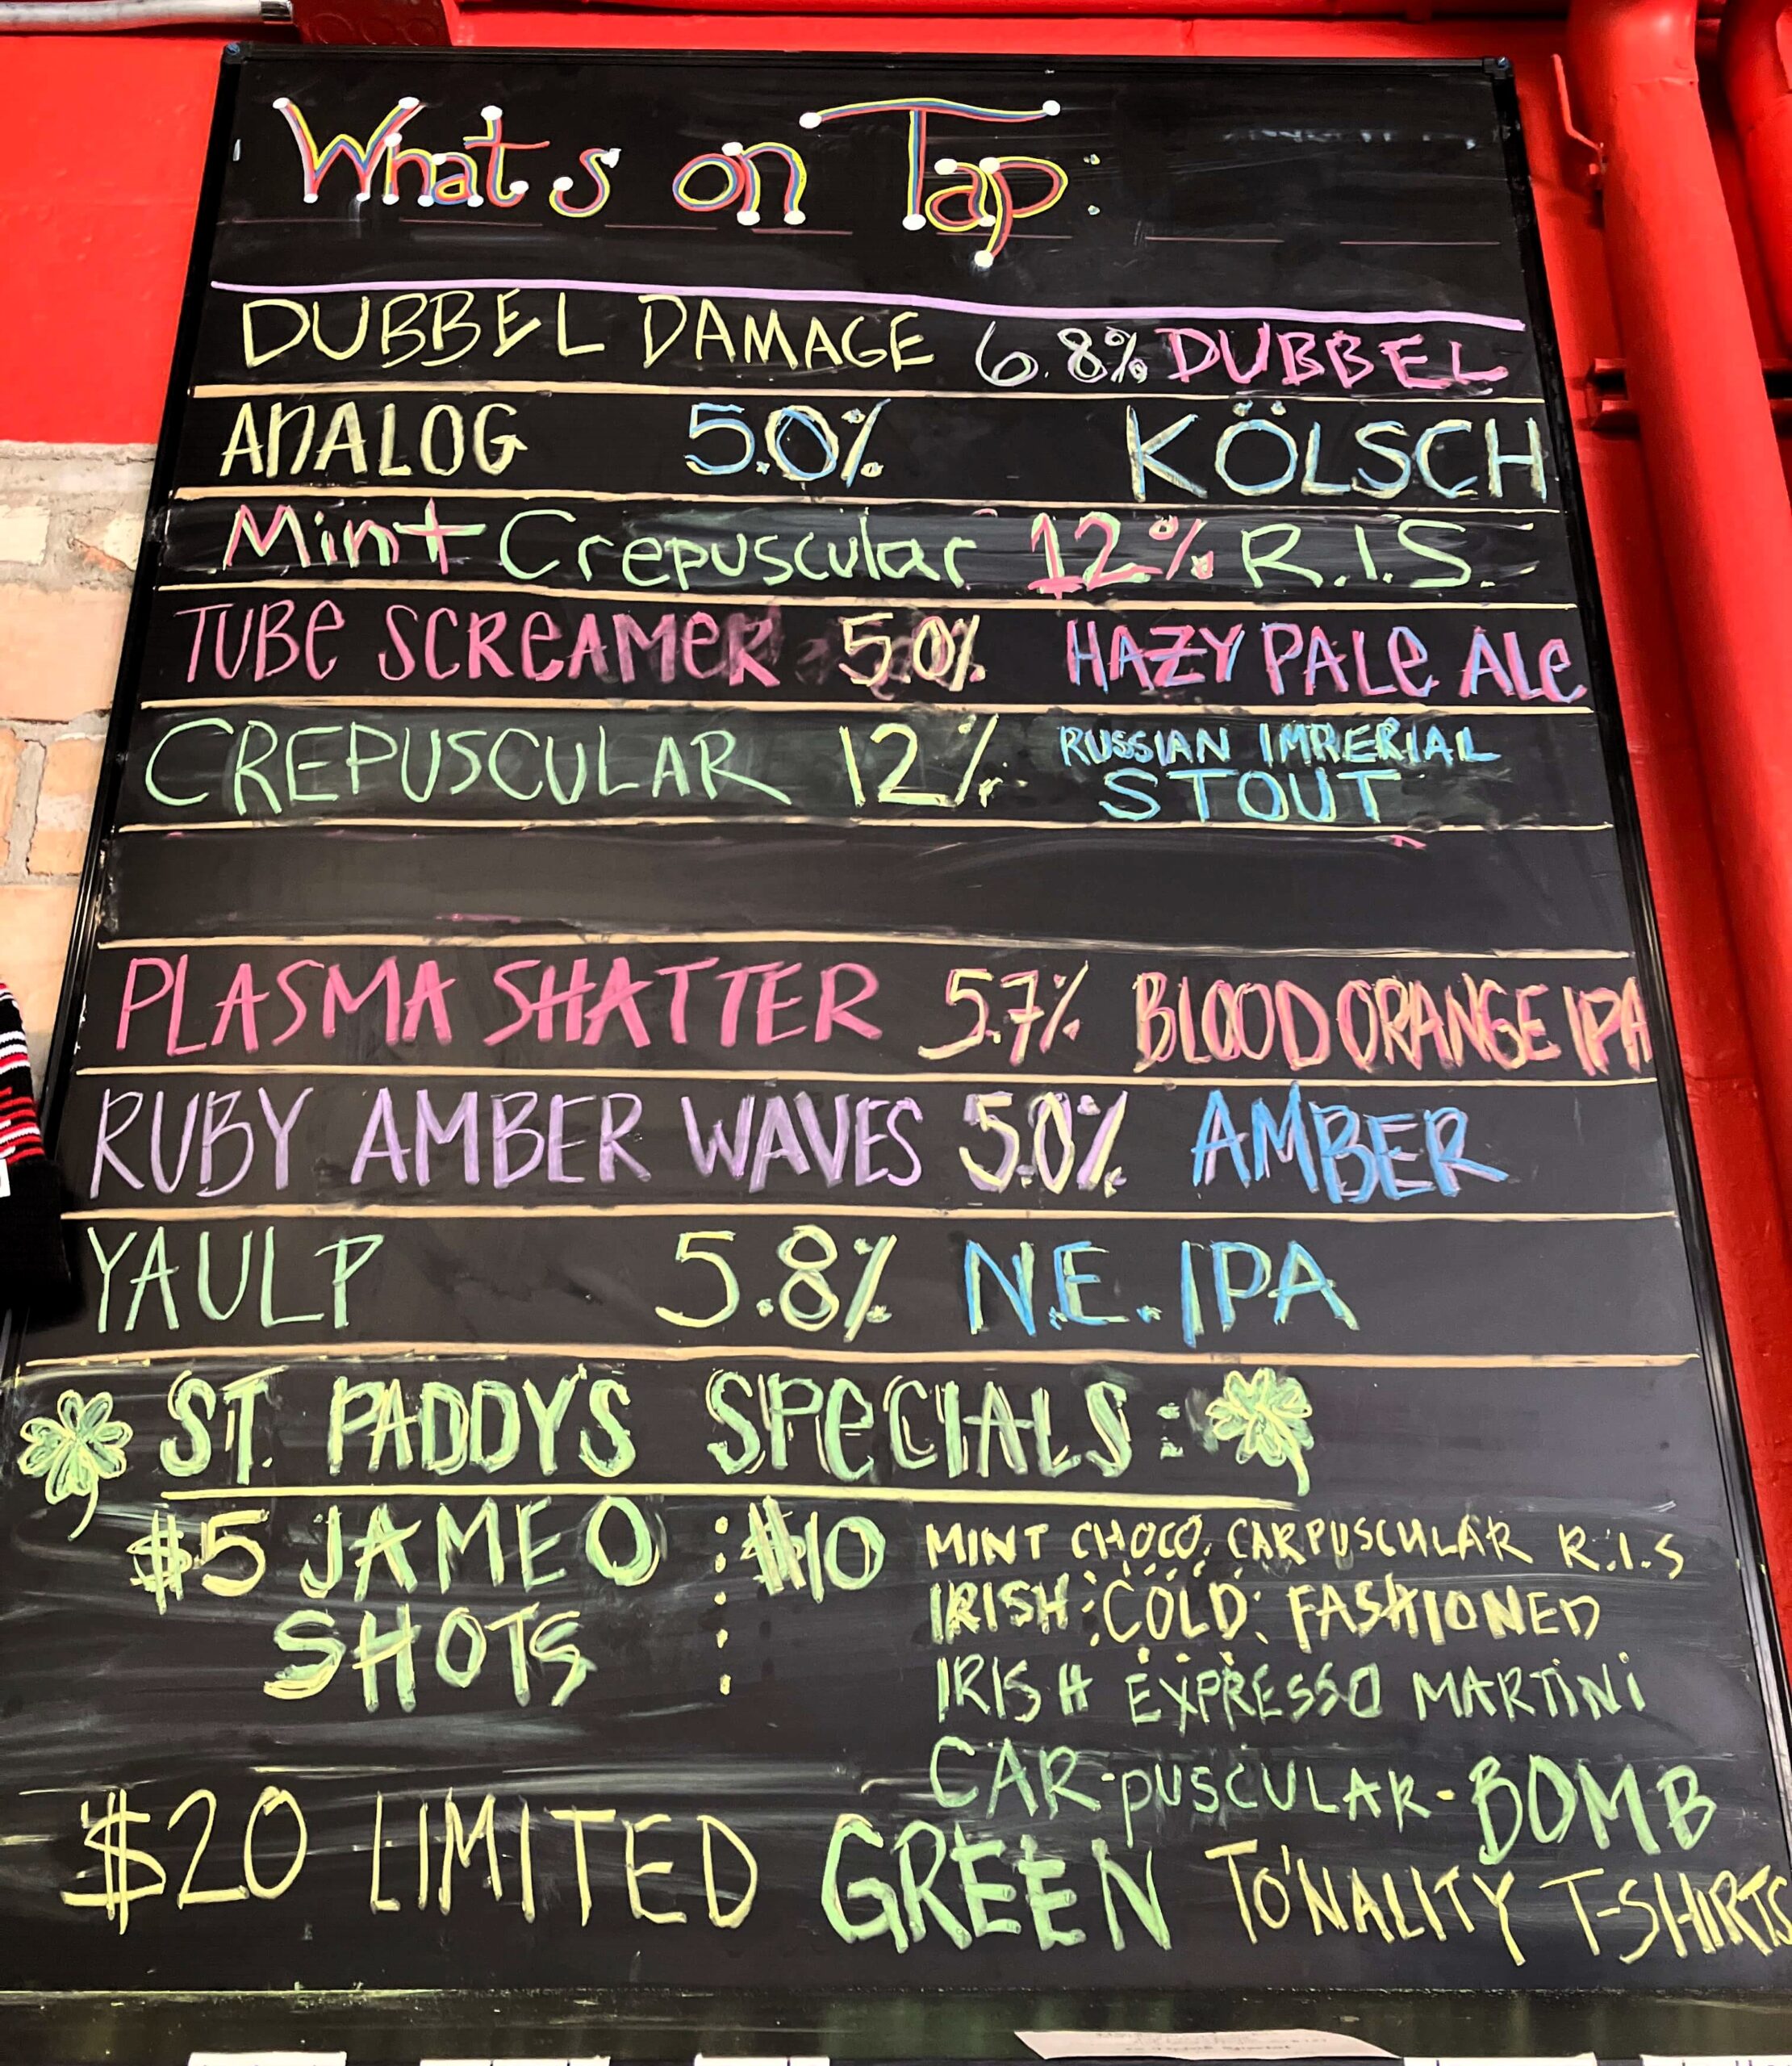 What's on Tap:
DUBBEL DAMAGE 6.8% DUBBEL
ANALOG 5.0% KÖLSCH
Mint Crepuscular 12% R.I.S.
TUBe SCReAMeR 5.0% HAZY PALe ALe
CREPUSCULAR 12% RUSSIAN IMPERIAL
STOUT
PLASMA SHATTER 5.7% BLOOD ORANGE IPA
RUBY AMBER WAVES 5.0% AMBER
YAULP 5.8% N.E. IPA
ST. PADDY'S SPeCIALS:
$5 JAMEO
SHOTS
$10 MINT CHOCO. CARPUSCULAR R.I.S
IRISH COLD FASHIONED
IRISH EXPRESSO MARTiNi
CAR-PUSCULAR-BOMB
$20 LIMITED GREEN TO'NALITY T-SHIRTS